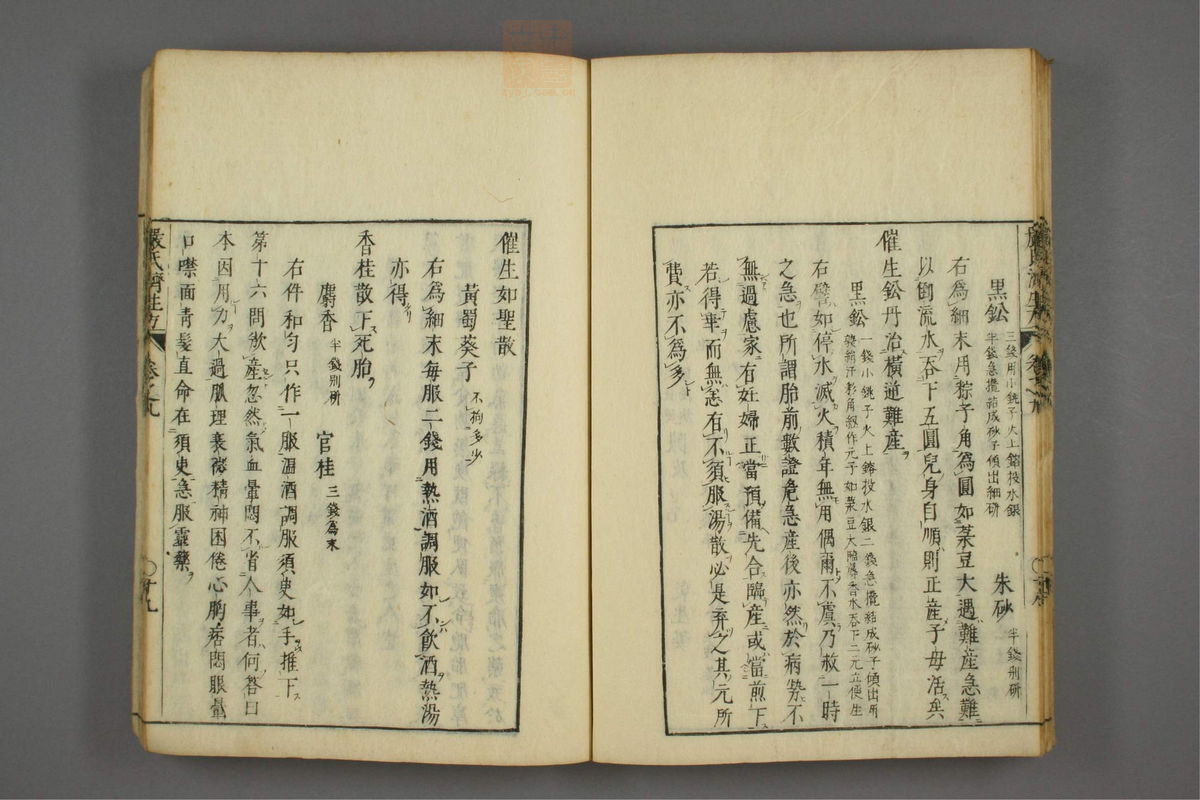 黒鈆 三錢用小銚子火上鎔投水銀半錢急攪結成砂子傾出細研 朱砂 半錢別研
右為細末用粽子角為圓如菉豆大遇難産急難
以倒流水吞下五圓兒身自順則正産子母活矣
催生鈆丹治橫逆難産
黒鈆 一錢小銚子火上鎔投水銀二錢急攪結成砂子傾出用
右譬如停水滅火積年無用偶爾不虞乃救一時
之急也所謂胎前數證危急産後亦然於病勢不
無過慮家有妊婦正當預備先合臨産或當煎下
若得幸而無恙有不須服湯散必是弃之其元所
費亦不為多
催生如聖散
黃蜀葵子 不拘多少
右為細末每服二錢用熱酒調服如不飲酒熱湯
亦得
香桂散下死胎
麝香 半錢別研 官桂 三錢為末
右件和勻只作一服溫酒調服須臾如手推下
第十六問欬産忽然氣血暈悶不省人事者何答曰
本因用力太過脉理衰微精神困倦心胸痞悶眼暈
口噤面青髮直命在須臾急服靈藥
嚴氏濟生方 卷之九 十九